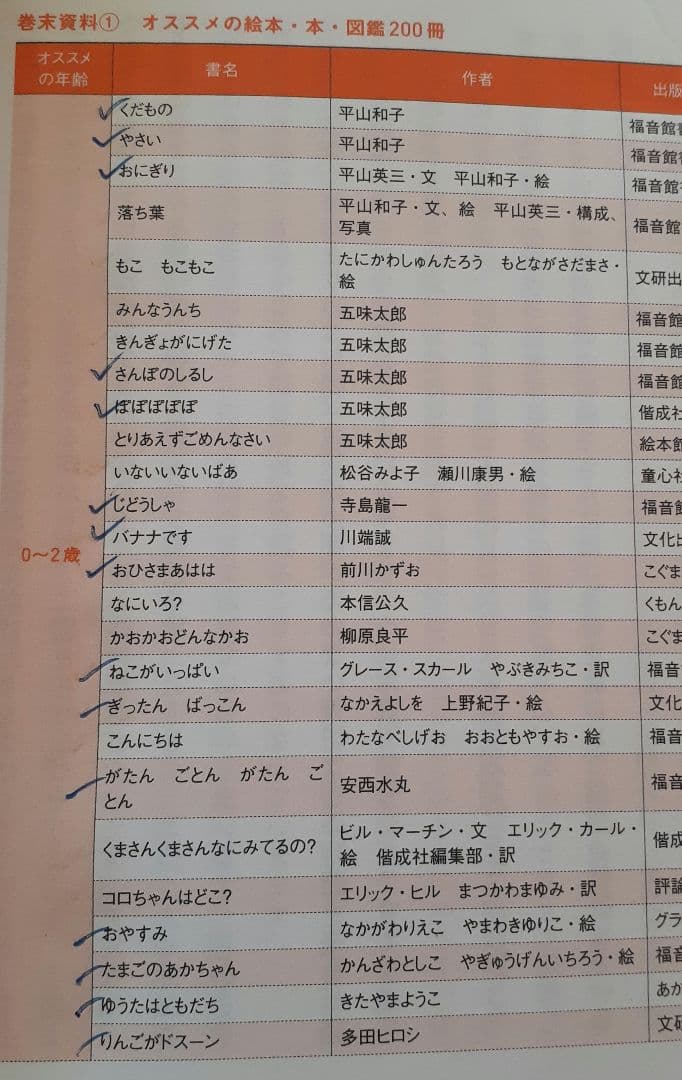 巻末資料① オススメの絵本・本・図鑑200冊
オススメの年齢 書名 作者 出版
0～2歳
くだもの 平山和子 福音館
やさい 平山和子 福音館
おにぎり 平山英三・文 平山和子・絵 福音館
落ち葉 平山和子・文、絵 平山英三・構成、
写真 福音館
もこ もこもこ たにかわしゅんたろう もとながさだまさ・
絵 文研出
みんなうんち 五味太郎 福音館
きんぎょがにげた 五味太郎 福音館
さんぽのしるし 五味太郎 福音館
ぽぽぽぽぽ 五味太郎 偕成社
とりあえずごめんなさい 五味太郎 絵本館
いないいないばあ 松谷みよ子 瀬川康男・絵 童心社
じどうしゃ 寺島龍一 福音館
バナナです 川端誠 文化出
おひさまあはは 前川かずお こぐま
なにいろ? 本信公久 くもん
かおかおどんなかお 柳原良平 こぐま
ねこがいっぱい グレース・スカール やぶきみちこ・訳 福音
ぎったん ばっこん なかえよしを 上野紀子・絵 文化
こんにちは わたなべしげお おおともやすお・絵 福音
がたん ごとん がたん ご
とん 安西水丸 福音
くまさんくまさんなにみてるの? ビル・マーチン・文 エリック・カール・
絵 偕成社編集部・訳 偕成
コロちゃんはどこ? エリック・ヒル まつかわまゆみ・訳 評論
おやすみ なかがわりえこ やまわきゆりこ・絵 グラ
たまごのあかちゃん かんざわとしこ やぎゅうげんいちろう・絵 福音
ゆうたはともだち きたやまようこ あか
りんごがドスーン 多田ヒロシ 文研